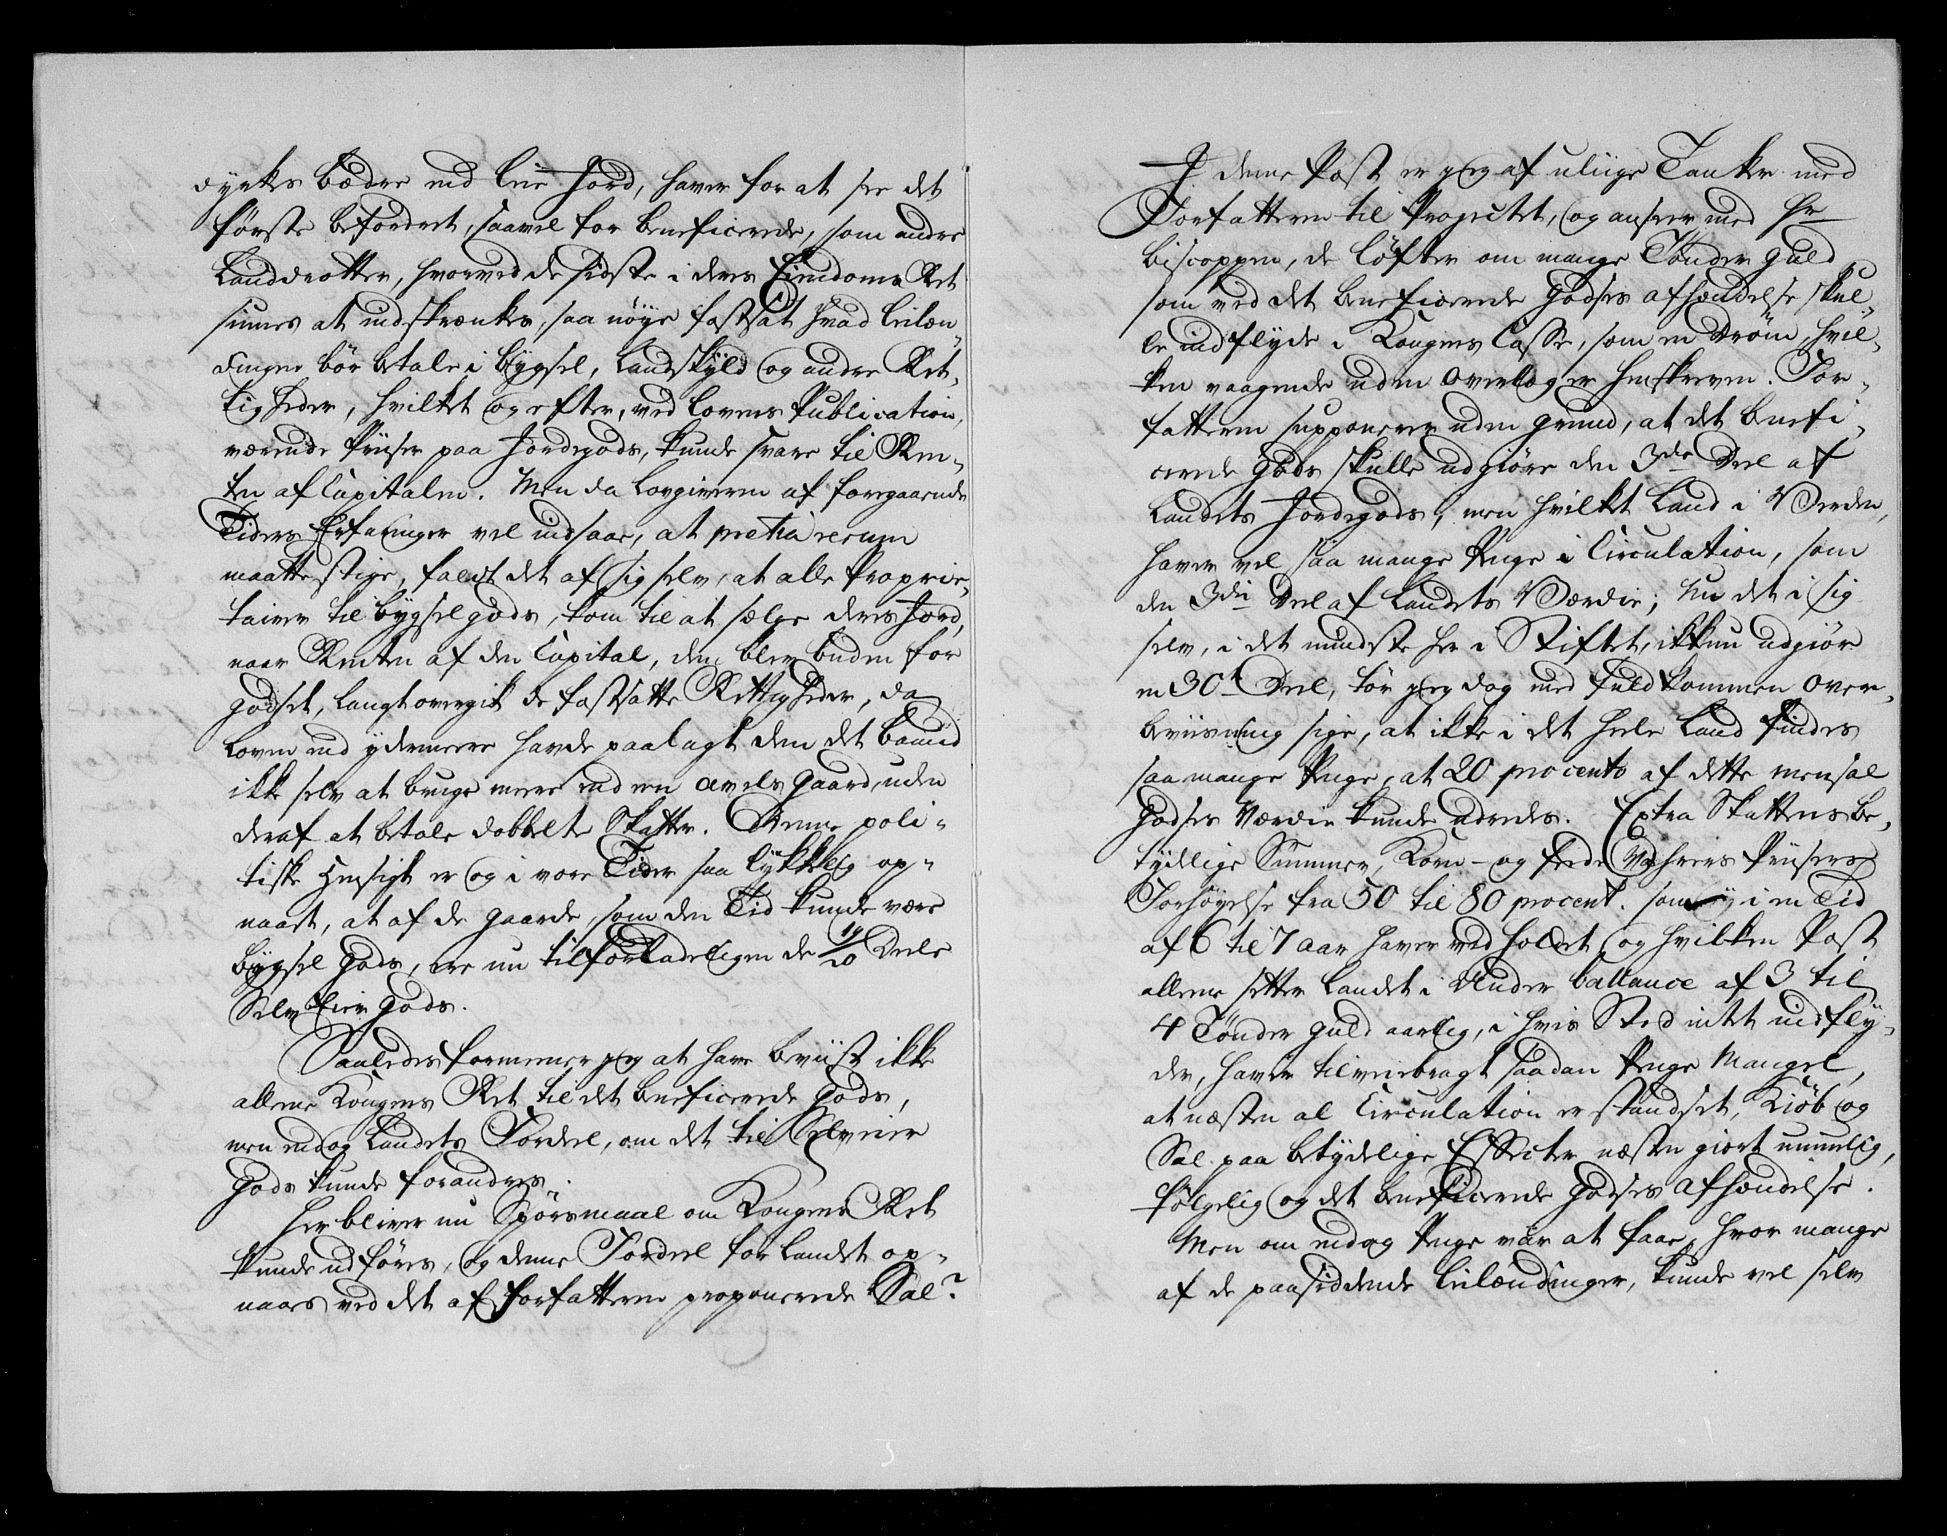 dyrkes bædre end leie Jord, haver for at see det
første befordret, saavel for beneficerede, som andre
Landdrotter, hvorved de sidste i deres Eiendoms Ret
siunes at indskrænkes, saa nöye fastsat hvad leilæn„
dingene bör betale i bygsel, Landskyld og andre Ret„
tigheder, hvilket og efter, ved lovens Publication,
værende Priiser paa Jordegods, kunde svare til Ren„
ten af Capitalen. Men da lovgiveren af foregaaende
Tiders Erfaringer vel indsaae, at pretia rerum
maatte stige, faldt det af sig selv, at alle Proprie„
tairer til bygselgods, kom til at sælge deres Jord,
naar Renten af den Capital, dem blev buden for
godset, langt overgik de fastsatte Rettigheder, da
loven end ydermeere havde paalagt dem det baand
ikke selv at bruge meere end een avels gaard, uden
deraf at betale dobbelte Skatter. Denne poli„
tiske Hensigt er og i vore Tider saa lykkelig op„
naaet, at af de gaarde, som den Tid kunde være
bygsel gods, ere nu tilforladeligen de 19/20 Deele
Selv Eier gods.
Saaledes formeener jeg at have beviist ikke
allene Kongens Ret til det beneficerede gods,
men endog Landets Fordeel, om det til Selveier
gods kunde forandres.
Her bliver nu Spörsmaal om Kongens Ret
kunde udföres, og denne Fordeel for landet op„
naaes ved det af Forfatteren proponerede Sal?
I denne Post er jeg af uliige Tanker med
Forfatteren til Projectet, og anseer med Hr
Biscoppen, de löfter om mange Tönder guld
som ved det beneficerede godses afhændelse skul„
le indflyde i Kongens Casse, som en dröm, hvil„
ken vaagende uden overlæg er henskreven. For„
fatteren supponerer uden grund, at det benefi„
cerede gods skulle udgiöre den 3de Deel af
Landets Jordegods, men hvilket Land i Verden,
haver vel saa mange Penge i Circulation, som
den 3die Deel af Landets Værdie; Nu det i sig
selv, i det mindste her i Stiftet, ikkun udgiör
en 30te Deel, tör jeg dog med fuldkommen over„
beviisning sige, at ikke i det hele Land findes
saa mange Penge, at 20 procento af dette mensal
godses Værdie kunde udredes. Extra Skattens be„
tydelige Summer, Korn- og fede Vahrers Priisers
Forhöyelse fra 50 til 80 procent. som i en Tid
af 6 til 7 aar haver ved holdet og hvilken Post
allene setter Landet i Under ballance af 3 til
4 Tönder guld aarlig, i hvis Sted intet indfly„
der, haver tilveiebragt saadan Penge Mangel,
at næsten al Circulation er standset, Kiöb og
Sal paa betydelige Effecter næsten giort umuelig,
følgelig og det beneficerede godses afhændelse.
Men om endog Penge var at faae, hvor mange
af de paasiddende leilændinger, kunde vel selv